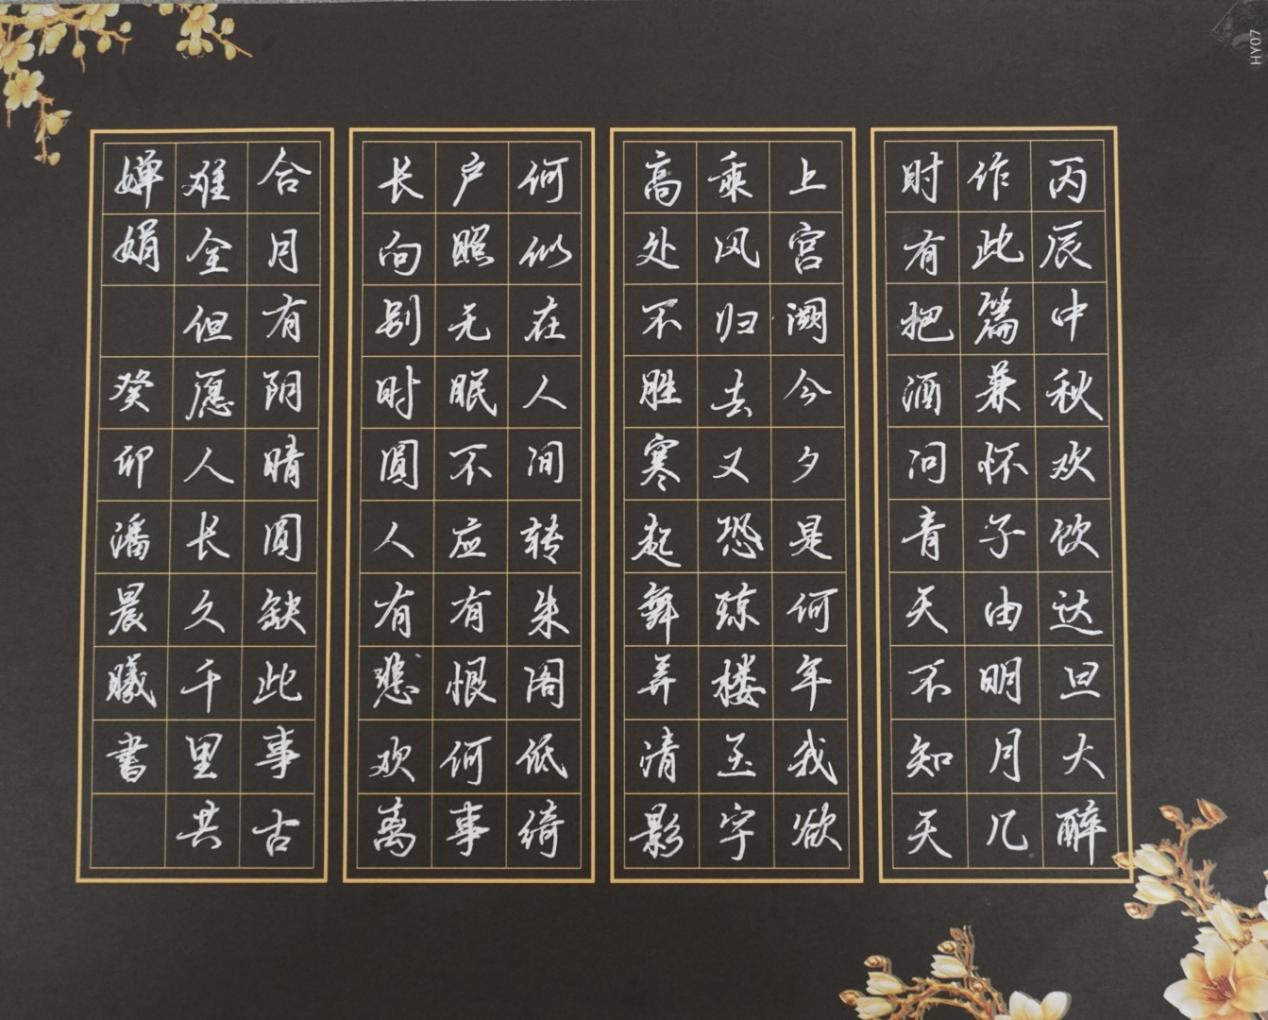 丙辰中秋欢饮达旦大醉
作此篇兼怀子由明月几
时有把酒问青天不知天
上宫阙今夕是何年我欲
乘风归去又恐琼楼玉宇
高处不胜寒起舞弄清影
何似在人间转朱阁低绮
户照无眠不应有恨何事
长向别时圆人有悲欢离
合月有阴晴圆缺此事古
难全但愿人长久千里共
婵娟 癸卯潘晨曦书
HY07